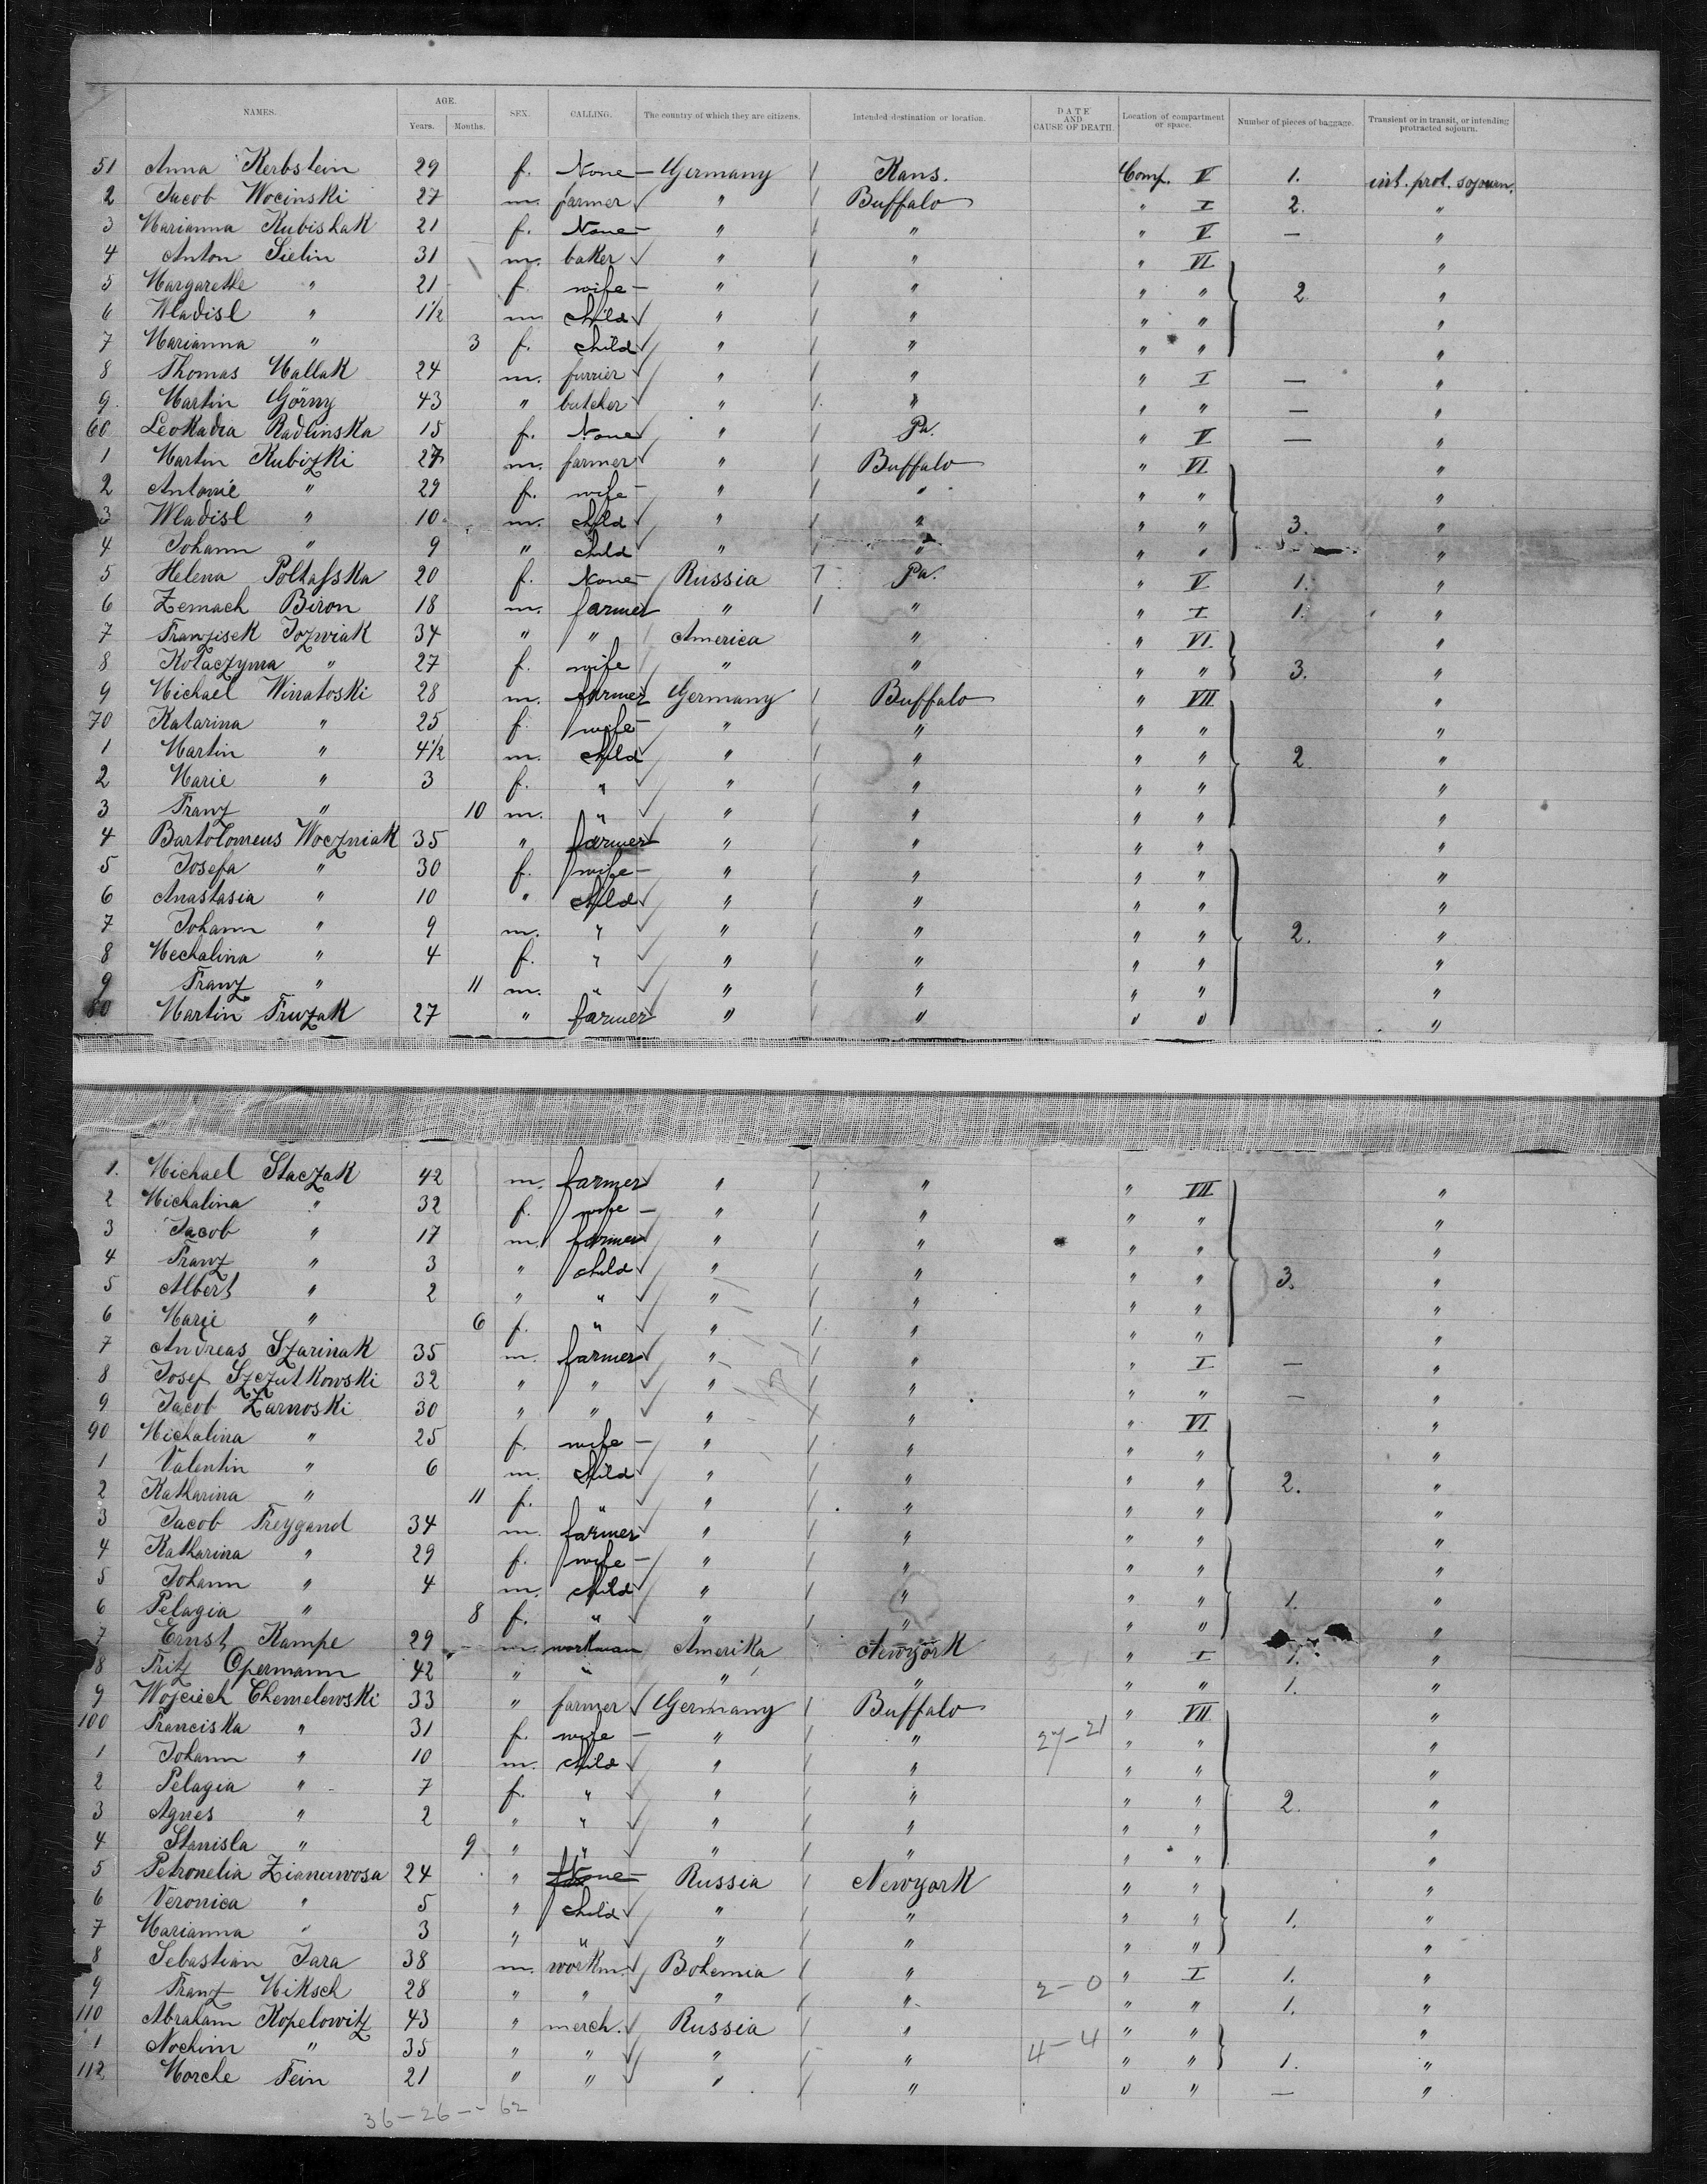 NAMES. AGE. Years. Months. SEX. CALLING. The country of which they are citizens. Intended destination or location. DATE AND CAUSE OF DEATH. Location of compartment or space. Number of pieces of baggage. Transient or in transit, or intending protracted sojourn.
51 Anna Kerbstein 29 f. None Germany Kans. Comp. V 1. int. prot. sojourn.
2 Jacob Wocinski 27 m. farmer " Buffalo " I 2. "
3 Marianna Kubishak 21 f. None " " " V — "
4 Anton Sielin 31 m. baker " " " VI "
5 Margarethe " 21 f. wife " " " " 2 "
6 Wladisl " 1½ m child " " " " "
7 Marianna " 3 f. child " " " " "
8 Thomas Mallak 24 m. furrier " " " I — "
9 Martin Görny 43 " butcher " " " " — "
60 Leokadia Radlinska 15 f. None " Pa. " V — "
1 Martin Kubizki 27 m. farmer " Buffalo " VI "
2 Antonie " 29 f. wife " " " " "
3 Wladisl " 10 m. child " " " " 3. "
4 Johann " 9 " child " " " " "
5 Helena Poltafska 20 f. None Russia Pa. " V 1. "
6 Zemach Biron 18 m. farmer " " " I 1. "
7 Franzisek Jozwiak 34 " " America " " VI "
8 Kolaczyma " 27 f. wife " " " " 3. "
9 Michael Winatoski 28 m. farmer Germany Buffalo " VII "
70 Katarina " 25 f. wife " " " " "
1 Martin " 4½ m. child " " " " 2 "
2 Marie " 3 f. " " " " " "
3 Franz " 10 m. " " " " " "
4 Bartolomeus Woczniak 35 " farmer " " " " "
5 Josefa " 30 f. wife " " " " "
6 Anastasia " 10 " child " " " " "
7 Johann " 9 m. " " " " " 2. "
8 Mechalina " 4 f. " " " " " "
9 Franz " 11 m. " " " " " "
80 Martin Fruzak 27 " farmer " " " " "
1. Michael Staczak 42 m. farmer " " " VII "
2 Michalina " 32 f. wife " " " " "
3 Jacob " 17 m. farmer " " " " "
4 Franz " 3 " child " " " " 3. "
5 Albert " 2 " " " " " " "
6 Marie " 6 f. " " " " " "
7 Andreas Szarinak 35 m. farmer " " " I — "
8 Josef Szczutkowski 32 " " " " " " — "
9 Jacob Zarnoski 30 " " " " " VI "
90 Michalina " 25 f. wife " " " " "
1 Valentin " 6 m. child " " " " 2. "
2 Katharina " 11 f. " " " " " "
3 Jacob Freygand 34 m. farmer " " " " "
4 Katharina " 29 f. wife " " " " "
5 Johann " 4 m. child " " " " 1. "
6 Pelagia " 8 f. " " " " " "
7 Ernst Kampe 29 m. workman Amerika Newyork " I 1. "
8 Fritz Opermann 42 " " " " " " 1. "
9 Wojciech Chemelewski 33 " farmer Germany Buffalo " VII "
100 Franciska " 31 f. wife " " 27-21 " " "
1 Johann " 10 m. child " " " " "
2 Pelagia " 7 f. " " " " " 2. "
3 Agnes " 2 " " " " " " "
4 Stanisla " 9 " " " " " " "
5 Petronelia 24 " None Russia Newyork " " "
6 Veronica " 5 " child " " " " 1. "
7 Marianna " 3 " " " " " " "
8 Sebastian Jara 38 m. workm. Bohemia " " I 1. "
9 Franz Miksch 28 " " " " 2-0 " " 1. "
110 Abraham Kopelowitz 43 " merch. Russia " " " "
1 Nochim " 35 " " " " 4-4 " " 1. "
112 Morche Fein 21 " " " " " " — "
36-26--62